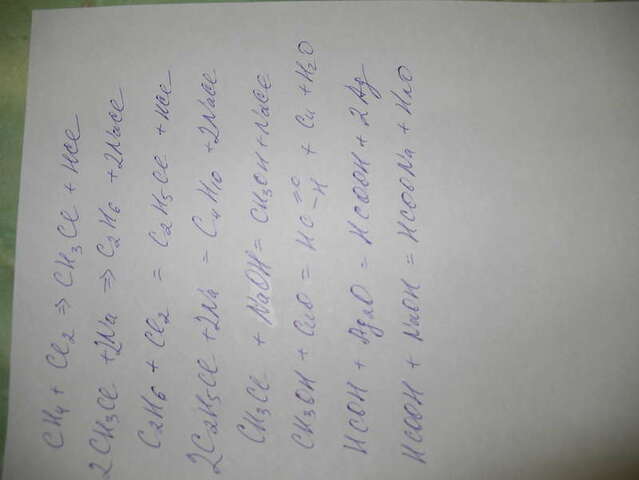 CH4 + Cl2 => CH3Cl + HCl
2CH3Cl + 2Na => C2H6 + 2NaCl
C2H6 + Cl2 = C2H5Cl + HCl
2C2H5Cl + 2Na = C4H10 + 2NaCl
CH3Cl + NaOH = CH3OH + NaCl
CH3OH + CuO = HC=O-H + Cu + H2O
HCOH + Ag2O = HCOOH + 2Ag
HCOOH + NaOH = HCOONa + H2O